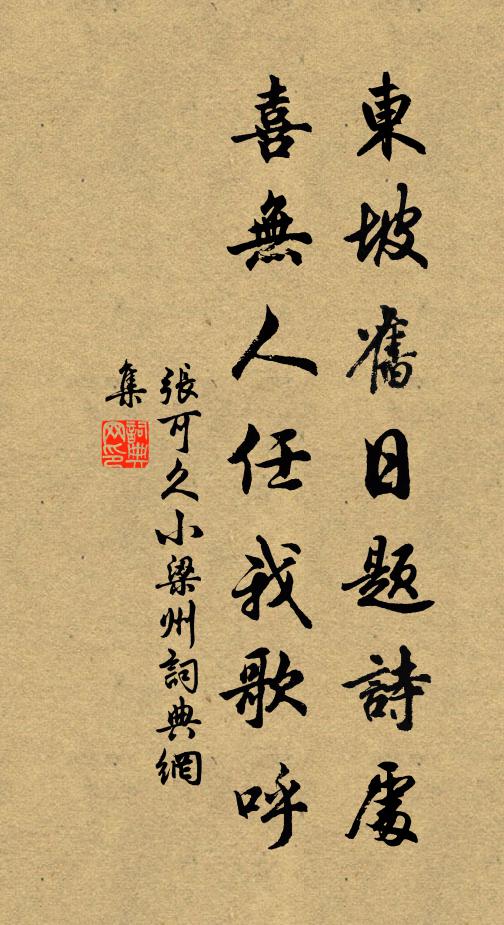 東坡舊日題詩處
喜無人任我歌呼
張可久小梁州詞典網
集
詞典
网印